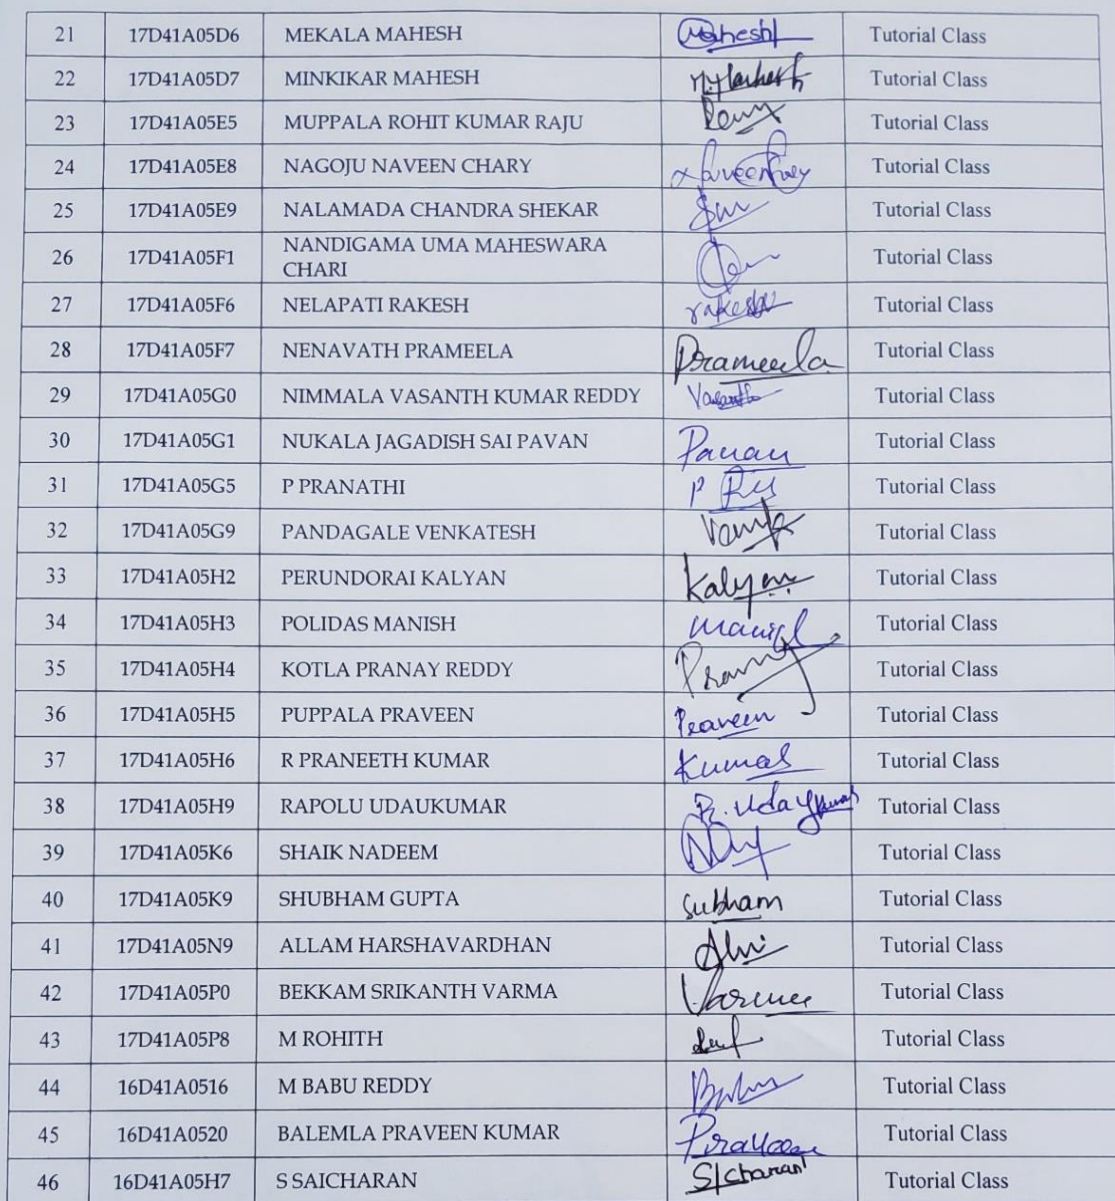 21 17D41A05D6 MEKALA MAHESH Mahesh Tutorial Class
22 17D41A05D7 MINKIKAR MAHESH Tutorial Class
23 17D41A05E5 MUPPALA ROHIT KUMAR RAJU Tutorial Class
24 17D41A05E8 NAGOJU NAVEEN CHARY Tutorial Class
25 17D41A05E9 NALAMADA CHANDRA SHEKAR Tutorial Class
26 17D41A05F1 NANDIGAMA UMA MAHESWARA Tutorial Class
CHARI
27 17D41A05F6 NELAPATI RAKESH rakesh Tutorial Class
28 17D41A05F7 NENAVATH PRAMEELA Prameela Tutorial Class
29 17D41A05G0 NIMMALA VASANTH KUMAR REDDY Vasanth Tutorial Class
30 17D41A05G1 NUKALA JAGADISH SAI PAVAN Pavan Tutorial Class
31 17D41A05G5 P PRANATHI Tutorial Class
32 17D41A05G9 PANDAGALE VENKATESH Tutorial Class
33 17D41A05H2 PERUNDORAI KALYAN Kalyan Tutorial Class
34 17D41A05H3 POLIDAS MANISH Manish Tutorial Class
35 17D41A05H4 KOTLA PRANAY REDDY Tutorial Class
36 17D41A05H5 PUPPALA PRAVEEN Praveen Tutorial Class
37 17D41A05H6 R PRANEETH KUMAR Kumar Tutorial Class
38 17D41A05H9 RAPOLU UDAUKUMAR R. Udaykumar Tutorial Class
39 17D41A05K6 SHAIK NADEEM Tutorial Class
40 17D41A05K9 SHUBHAM GUPTA Subham Tutorial Class
41 17D41A05N9 ALLAM HARSHAVARDHAN Tutorial Class
42 17D41A05P0 BEKKAM SRIKANTH VARMA Varma Tutorial Class
43 17D41A05P8 M ROHITH Tutorial Class
44 16D41A0516 M BABU REDDY Tutorial Class
45 16D41A0520 BALEMLA PRAVEEN KUMAR Praveen Tutorial Class
46 16D41A05H7 S SAICHARAN S/charan Tutorial Class